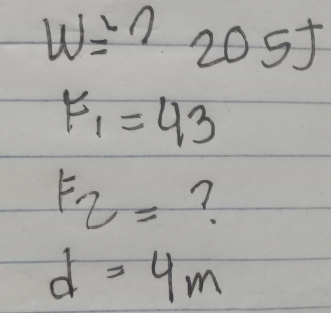 W = ? 205J
F₁ = 43
F₂ = ?
d = 4m